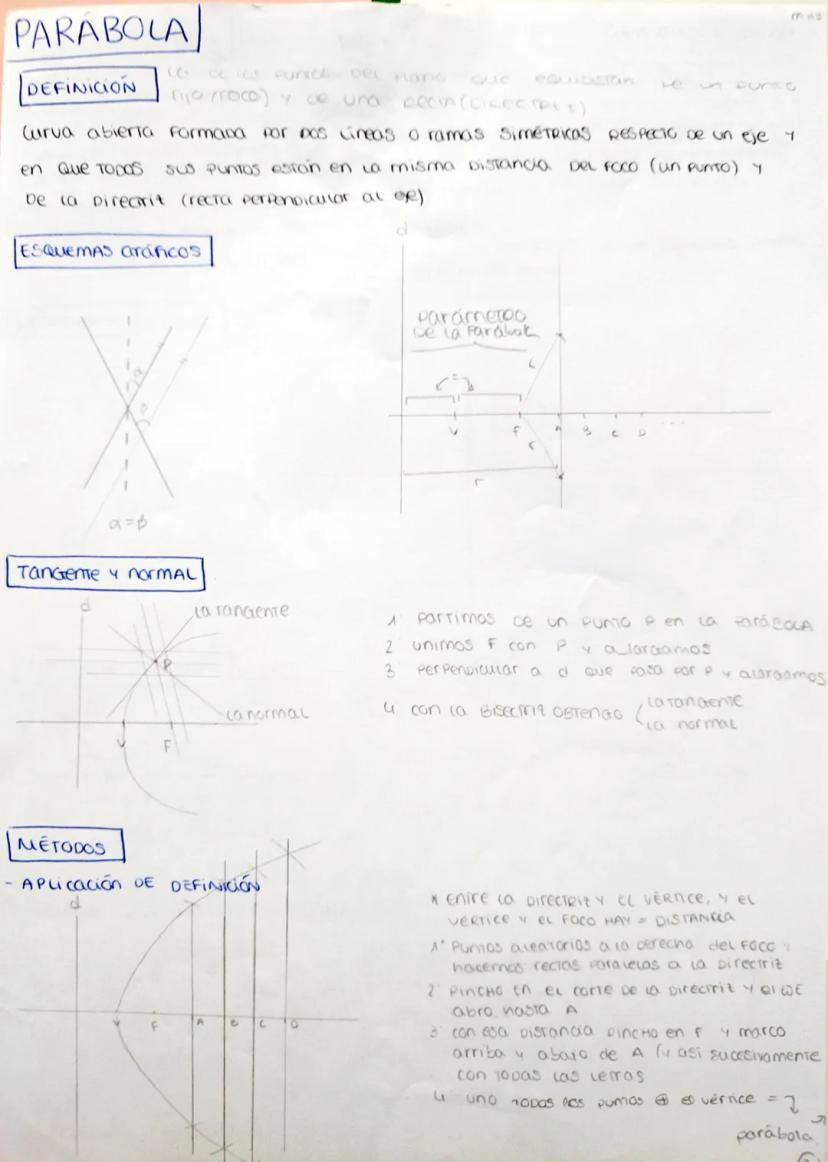 PARÁBOLA
DEFINICIÓN
LG de los puntos del plano que equidistan de un punto
fijo (foco) y de una recta (directriz)
Curva abierta formada por dos líneas o ramas simétricas respecto de un eje y
en que todos sus puntos están en la misma distancia del foco (un punto) y
de la directriz (recta perpendicular al eje)
ESQUEMAS GRÁFICOS
d
Parámetro
de la parábola
=
r
V F A B C D ...
r
r
α
β
α = β
TANGENTE Y NORMAL
d
La tangente
P
La normal
V F
1 Partimos de un punto P en la parábola
2 unimos F con P y alargamos
3 Perpendicular a d que pasa por P y alargamos
4 con la bisectriz obtengo
La tangente
La normal
MÉTODOS
- APLICACIÓN DE DEFINICIÓN
d
V F A B C D
* Entre la directriz y el vértice, y el
vértice y el foco hay = distancia
1º Puntos aleatorios a la derecha del foco y
hacemos rectas paralelas a la directriz
2º Pincho en el corte de la directriz y el eje
abro hasta A
3º con esa distancia pincho en F y marco
arriba y abajo de A (y así sucesivamente
con todas las letras
4 uno todos los puntos ⊕ el vértice =
parábola